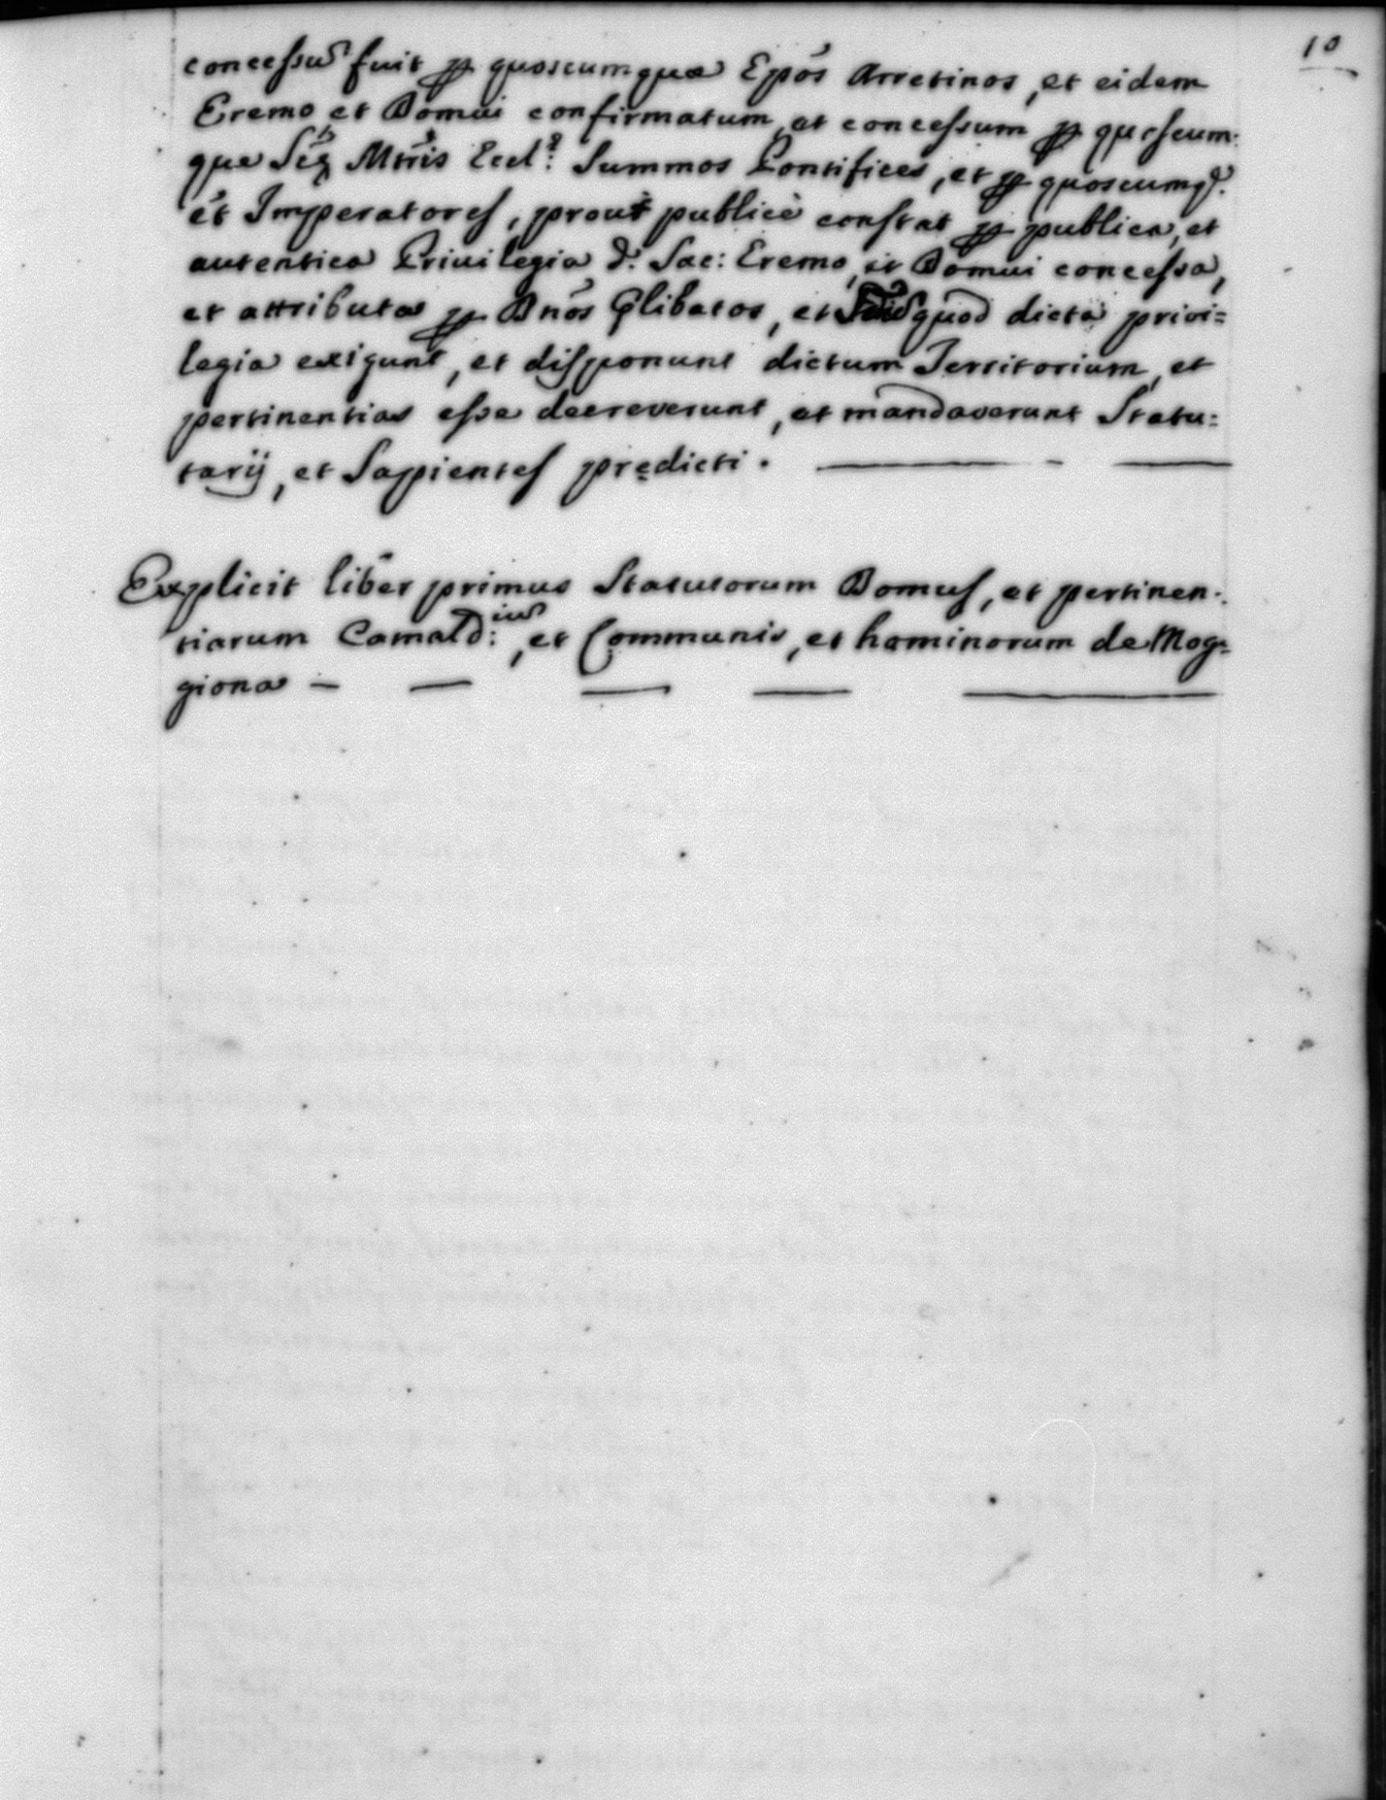 10
concessũ fuit ꝑ quoscumque Epõs Arretinos, et eidem
Eremo et Domui confirmatum, et concessum ꝑ quoscum:
que Mtris Eccl. Summos Pontifices, et ꝑ quoscumq.
et Imperatores, prout publicè constat ꝑ publica, et
autentica Priuilegia d. Sac: Eremo, et Domui concessa,
et attributa ꝑ Dnõs Plibatos, et quod dicta privi=
legia exigunt, et disponunt dictum Territorium, et
pertinentias esse decreverunt, et mandaverunt Statu=
tarij, et Sapientes prędicti.
Explicit liber primus Statutorum Domus, et pertinen:
tiarum Camald:, et Communis, et hominorum de Mog=
giona